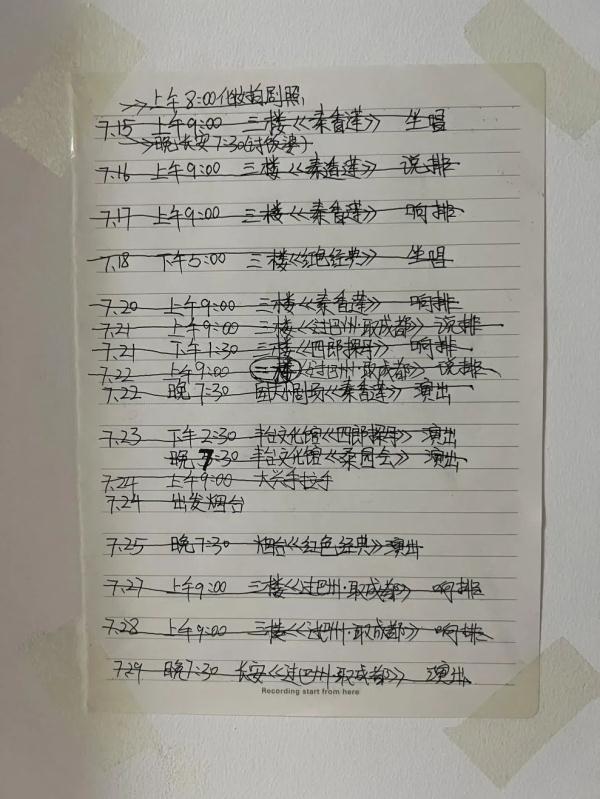 上午8:00化妆拍剧照
7.15 上午9:00 三楼《秦香莲》 坐唱
晚长安7:30(讨饭婆)
7.16 上午9:00 三楼《秦香莲》 说排
7.17 上午9:00 三楼《秦香莲》 响排
7.18 下午5:00 三楼《红色经典》 坐唱
7.20 上午9:00 三楼《秦香莲》 响排
7.21 上午9:00 三楼《过巴州·取成都》说排
7.21 下午1:30 三楼《四郎探母》 响排
7.22 上午9:00 三楼《过巴州·取成都》说排
7.22 晚7:30 国大小剧场《秦香莲》演出
7.23 下午2:30 丰台文化馆《四郎探母》演出
晚7:30 丰台文化馆《桑园会》演出
7.24 上午9:00 大兴手拉手
7.24 出发烟台
7.25 晚7:30 烟台《红色经典》演出
7.27 上午9:00 三楼《过巴州·取成都》响排
7.28 上午9:00 三楼《过巴州·取成都》响排
7.29 晚7:30 长安《过巴州·取成都》演出
Recording start from here